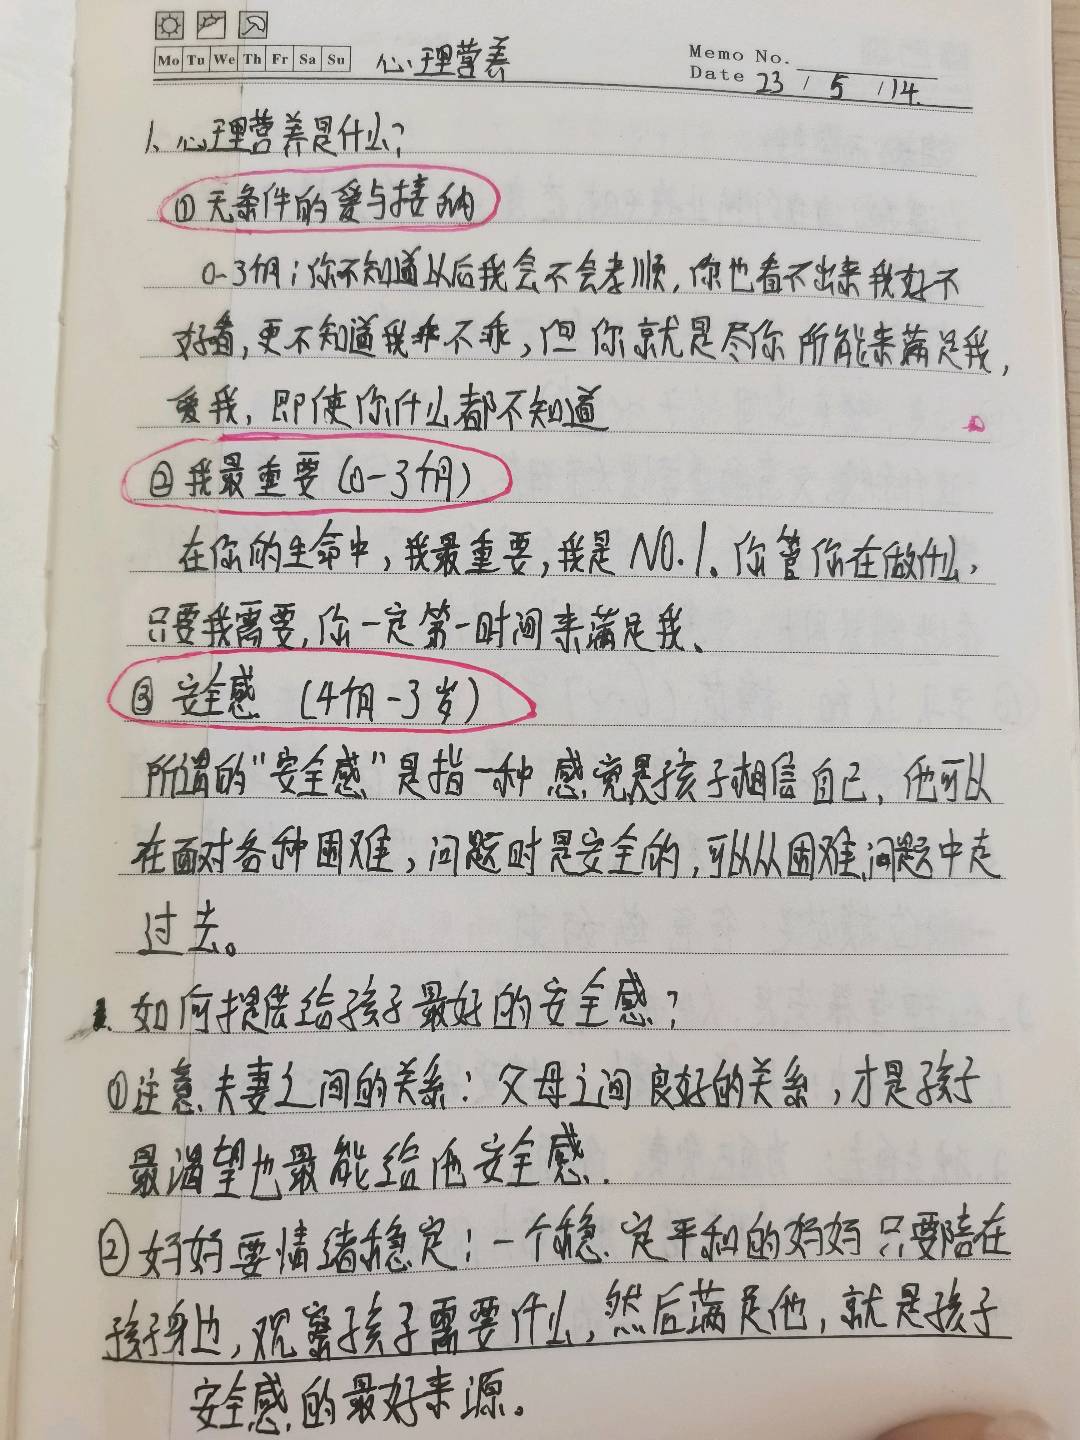 Mo Tu We Th Fr Sa Su
心理营养
Memo No.
Date 23 / 5 / 14.
1、心理营养是什么?
①无条件的爱与接纳
0-3个月;你不知道以后我会不会孝顺,你也看不出来我好不
好看,更不知道我乖不乖,但你就是尽你所能来满足我,
爱我,即使你什么都不知道
②我最重要(0-3个月)
在你的生命中,我最重要,我是NO.1、你管你在做什么,
只要我需要,你一定第一时间来满足我、
③ 安全感 (4个月-3岁)
所谓的"安全感"是指一种感觉是孩子相信自己,他可以
在面对各种困难,问题时是安全的,可以从困难、问题中走
过去。
如何提供给孩子最好的安全感?
①注意夫妻之间的关系:父母之间良好的关系,才是孩子
最渴望也最能给他安全感.
②妈妈要情绪稳定:一个稳定平和的妈妈只要陪在
孩子身边,观察孩子需要什么,然后满足他,就是孩子
安全感的最好来源。